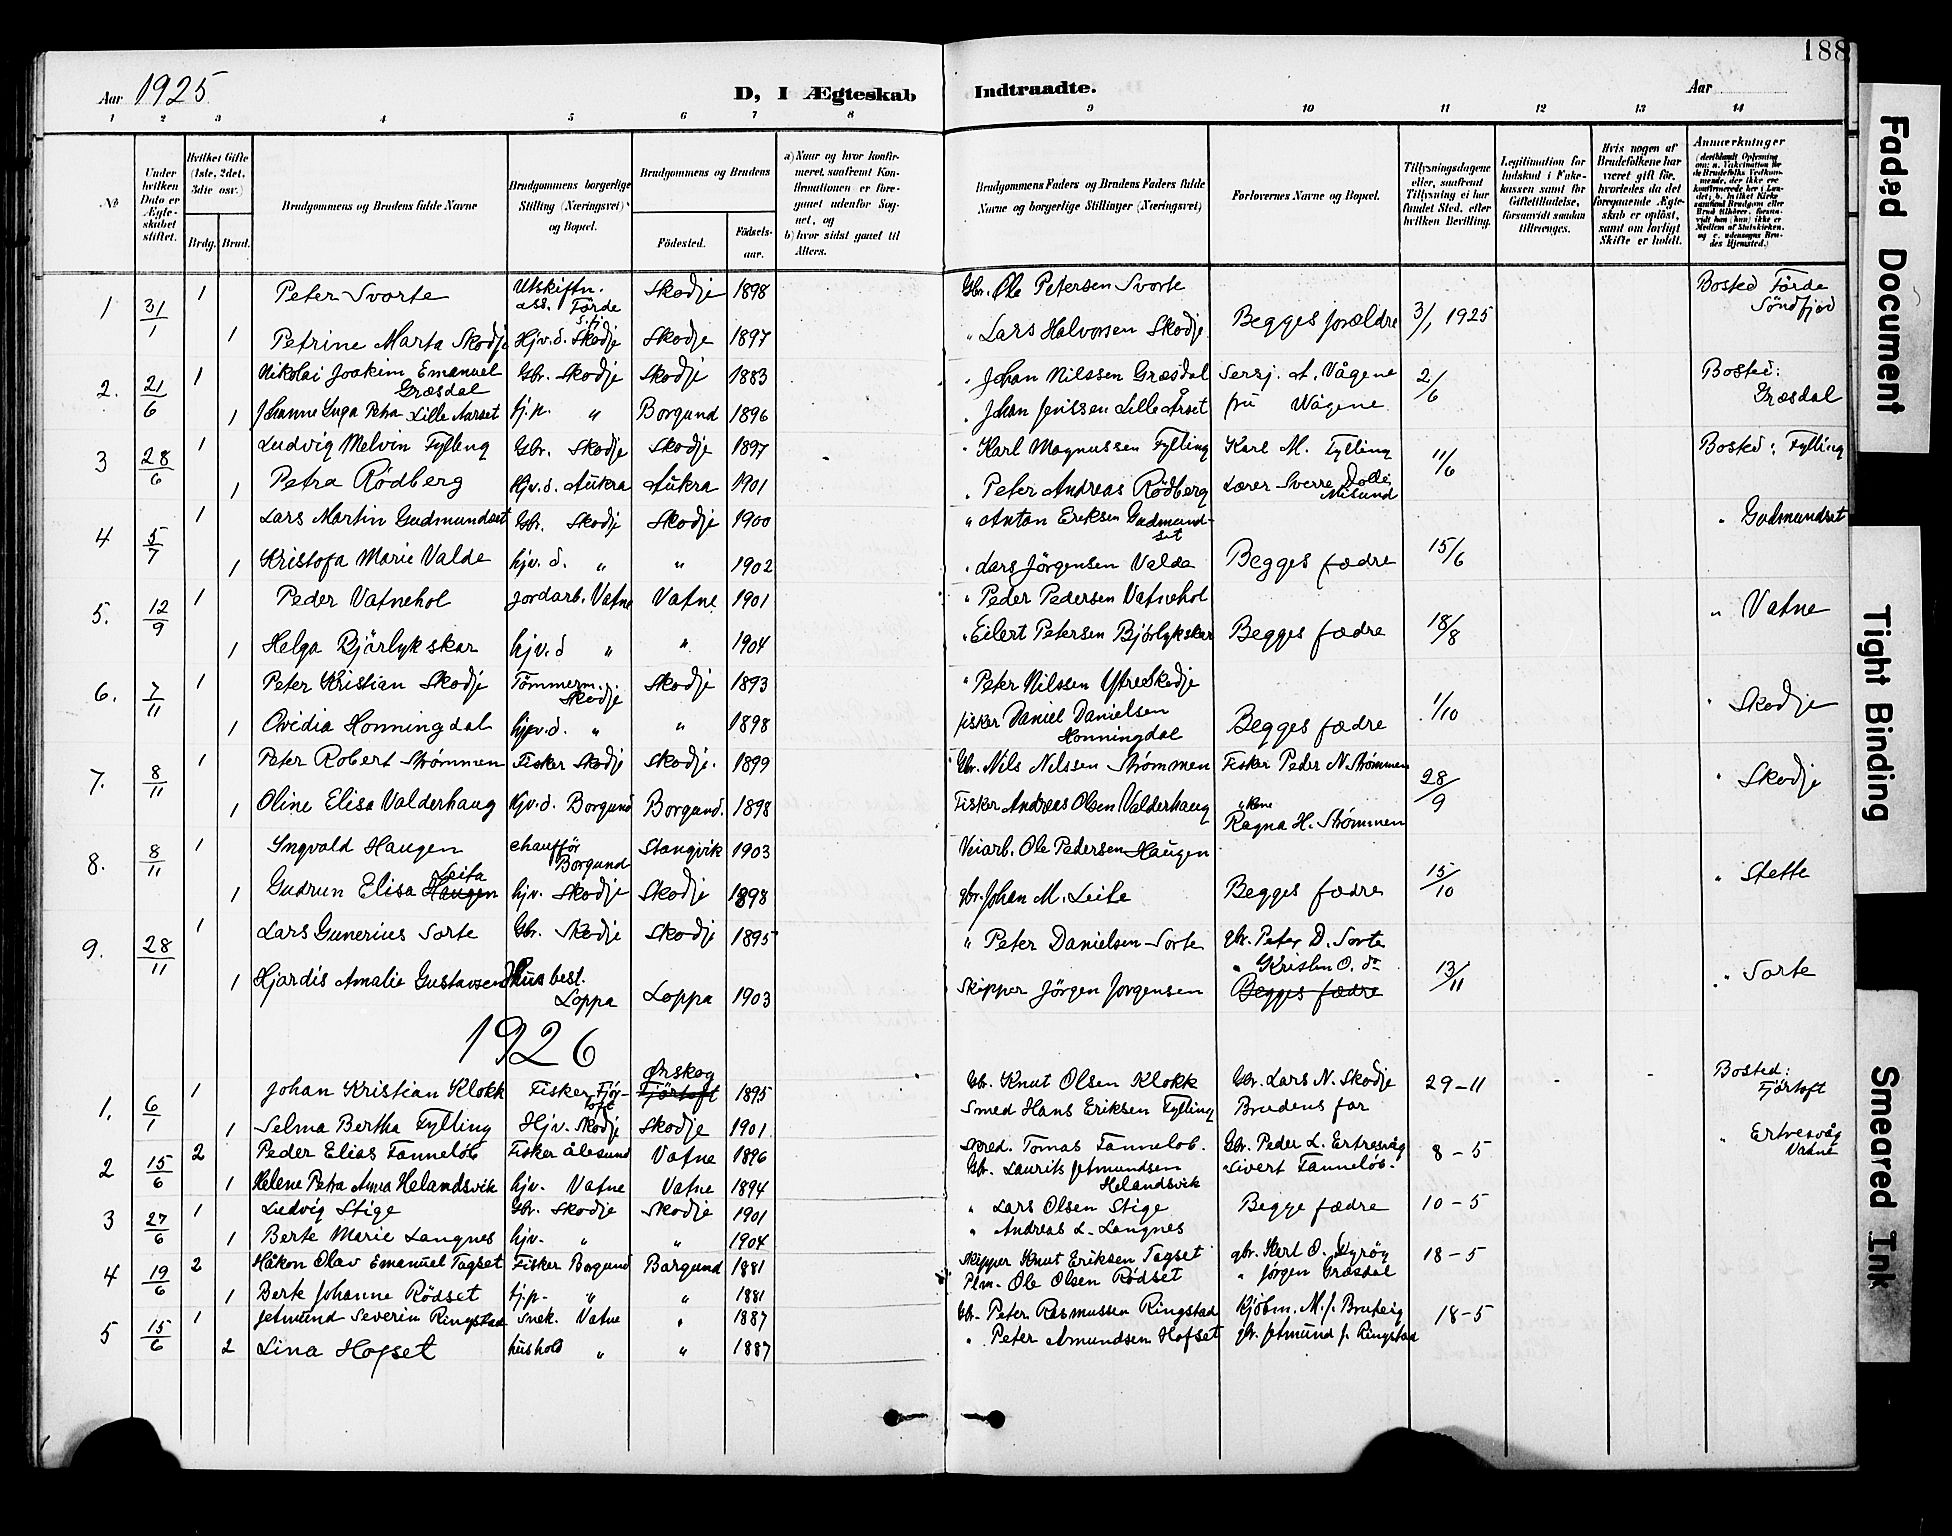 188
Aar 1925
D, I Ægteskab Indtraadte.
Aar
1 2 3 4 5 6 7 8 9 10 11 12 13 14
No
Under hvilken Dato er Ægteskabet stiftet.
Hvilket Gifte (1ste, 2det, 3die osv.)
Brdg. Brud.
Brudgommens og Brudens fulde Navne
Brudgommens borgerlige Stilling (Næringsvei) og Bopæl.
Brudgommens og Brudens
Fødested.
Fødselsaar.
a) Naar og hvor konfirmeret, saafremt Konfirmationen er foregaaet udenfor Sognet, og
b) hvor sidst gaaet til Alters.
Brudgommens Faders og Brudens Faders fulde Navne og borgerlige Stillinger (Næringsvei)
Forlovernes Navne og Bopæl.
Tillysningsdagene eller, saafremt Tillysning ei har fundet Sted, efter hvilken Bevilling.
Legitimation for Indskud i Enkekassen samt for Giftetilladelse, forsaavidt saadan tiltrænges.
Hvis nogen af Brudefolkene har været gift før, hvorledes da det foregaaende Ægteskab er opløst, samt om lovligt Skifte er holdt.
Anmærkninger
1 31/1 1 Peter Svorte Utskiftn. ass. Førde S.fj. Skodje 1898 Gbr. Ole Petersen Svorte Bosted Førde Söndfjord
1 Petrine Marta Skodje Hjv.d. Skodje Skodje 1897 " Lars Halvorsen Skodje Begges forældre 3/1 1925
2. 21/6 1 Nikolai Joakim Emanuel Græsdal Gbr. Skodje Skodje 1883 " Johan Nilssen Græsdal Sersj. A. Vågene 2/6 Bosted: Græsdal
1 Johanne Inga Petra Lille Aarset tj.p. " Borgund 1896 " Johan Jenssen Lille Årset fru Wågene
3 28/6 1 Ludvig Melvin Fylling Gbr. Skodje Skodje 1897 " Karl Magnussen Fylling Karl M. Fylling 11/6 Bosted: Fylling
1 Petra Rödberg Hjv.d. Aukra Aukra 1901 " Peter Andreas Rødberg Lærer Sverre Dolle, Misund
4 5/7 1 Lars Martin Gudmundset Gbr. Skodje Skodje 1900 " Anton Eriksen Gudmundset " Gudmundset
1 Kristofa Marie Valde hjv.d. " " 1902 " Lars Jörgensen Valde Begges fædre 15/6
5. 12/9 1 Peder Vatnehol Jordarb. Vatne Vatne 1901 " Peder Pedersen Vatnehol " Vatne
1 Helga Bjørlykskar hjv.d " " 1904 " Eilert Petersen Bjørlykskar Begges fædre 18/8
6. 7/11 1 Peter Kristian Skodje Tømmerm. Skodje Skodje 1893 " Peter Nilssen Ytre Skodje " Skodje
1 Ovidia Honningdal hjv.d. " " 1898 fisker Daniel Danielsen Honningdal Begges fædre 1/10
7. 8/11 1 Peter Robert Strømmen Fisker Skodje Skodje. 1899 Gbr. Nils Nilssen Strømmen Fisker Peder N. Strømmen 28/9 " Skodje
1 Oline Elisa Valderhaug Hjv.d. Borgund Borgund. 1898 Fisker Andreas Olsen Valderhaug Ragna H. Strømmen
8. 8/11 1 Ingvald Haugen chauffør Borgund Stangvik 1903 Veiarb. Ole Pedersen Haugen " Stette
1 Gudrun Elisa Haugen Leite hjv. Skodje Skodje 1898 gbr. Johan M. Leite Begges fædre 15/10
9. 28/11 1 Lars Gunerius Sorte Gbr. Skodje Skodje 1895 " Peter Danielsen Sorte gbr. Peter D. Sorte " Sorte
1 Hjørdis Amalie Gustavsen Husbest. Loppa Loppa 1903 Skipper Jörgen Jorgensen " Kristen O. do Begges fædre 13/11
1926
1. 6/1 1 Johan Kristian Klokk Fisker Fjørtoft Ørskog Fjörtoft 1895 Gbr. Knut Olsen Klokk Gbr. Lars N. Skodje 29-11 Bosted: Fjørtoft
1 Selma Bertha Fylling Hjv. Skodje Skodje 1901 Smed Hans Eriksen Fylling Brudens far
2 15/6 2 Peder Elias Tanneløb Fisker Ålesund Vatne 1896 Tomas Tanneløb. Gbr. Peder L. Ertresvåg 8-5 " Ertresvåg Vatne
1 Helene Petra Anna Helandsvik hjv. Vatne Vatne 1894 Gbr. Laurits Jetmundsen Helandsvik " Sivert Tanneløb.
3 27/6 1 Ludvig Stige Gbr. Skodje Skodje 1901 " Lars Olsen Stige Begge fædre 10-5
1 Berte Marie Langnes hjv. " " 1904 " Andreas L. Langnes
4 19/6 2 Håkon Olav Emanuel Tagset Fisker Borgund Borgund 1881 Skipper Knut Eriksen Tagset gbr. Karl O. Dyrøy 18-5
1 Berte Johanne Rödset tj.p. " " 1881 Plm. Ole Olsen Rödset " Jørgen Græsdal
5 15/6 1 Jetmund Severin Ringstad Snek. Vatne " 1887 Gbr. Peter Rasmussen Ringstad Kjøbm. M. J. Bruteig 18-5
2 Lina Hofset hushold " " 1887 " Peter Amundsen Hofset gbr. Jetmund J. Ringstad
Faded Document
Tight Binding
Smeared Ink